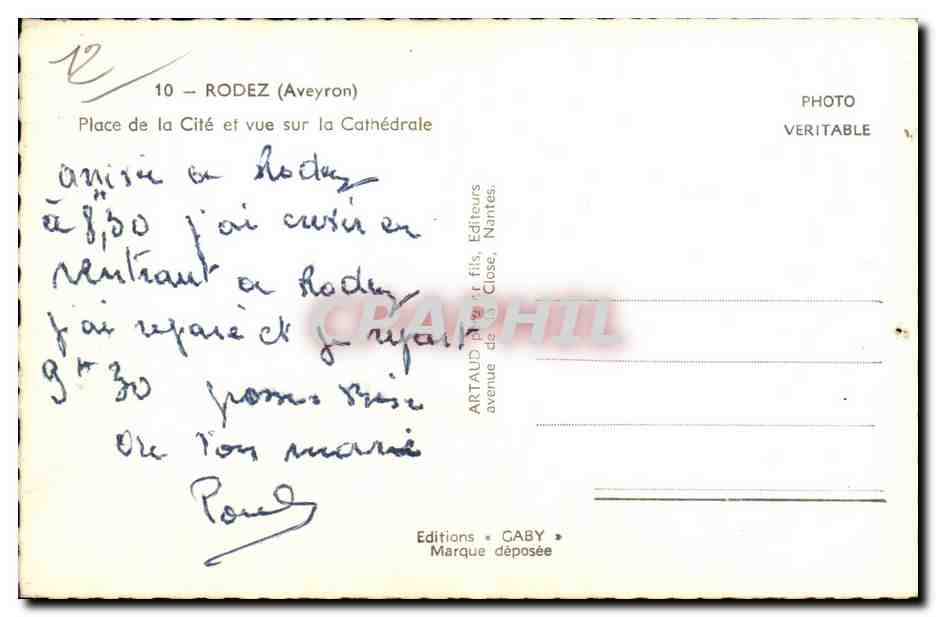 12
10 — RODEZ (Aveyron)
Place de la Cité et vue sur la Cathédrale
PHOTO
VERITABLE
a Rodez
à 8h,30 j'ai en
rentrant a Rodez
j'ai reparé et je repart
9h 30
ton marie
Paul
ARTAUD père fils, Editeurs
avenue de la Close, Nantes.
CPRAPHIL
Editions « GABY »
Marque déposée